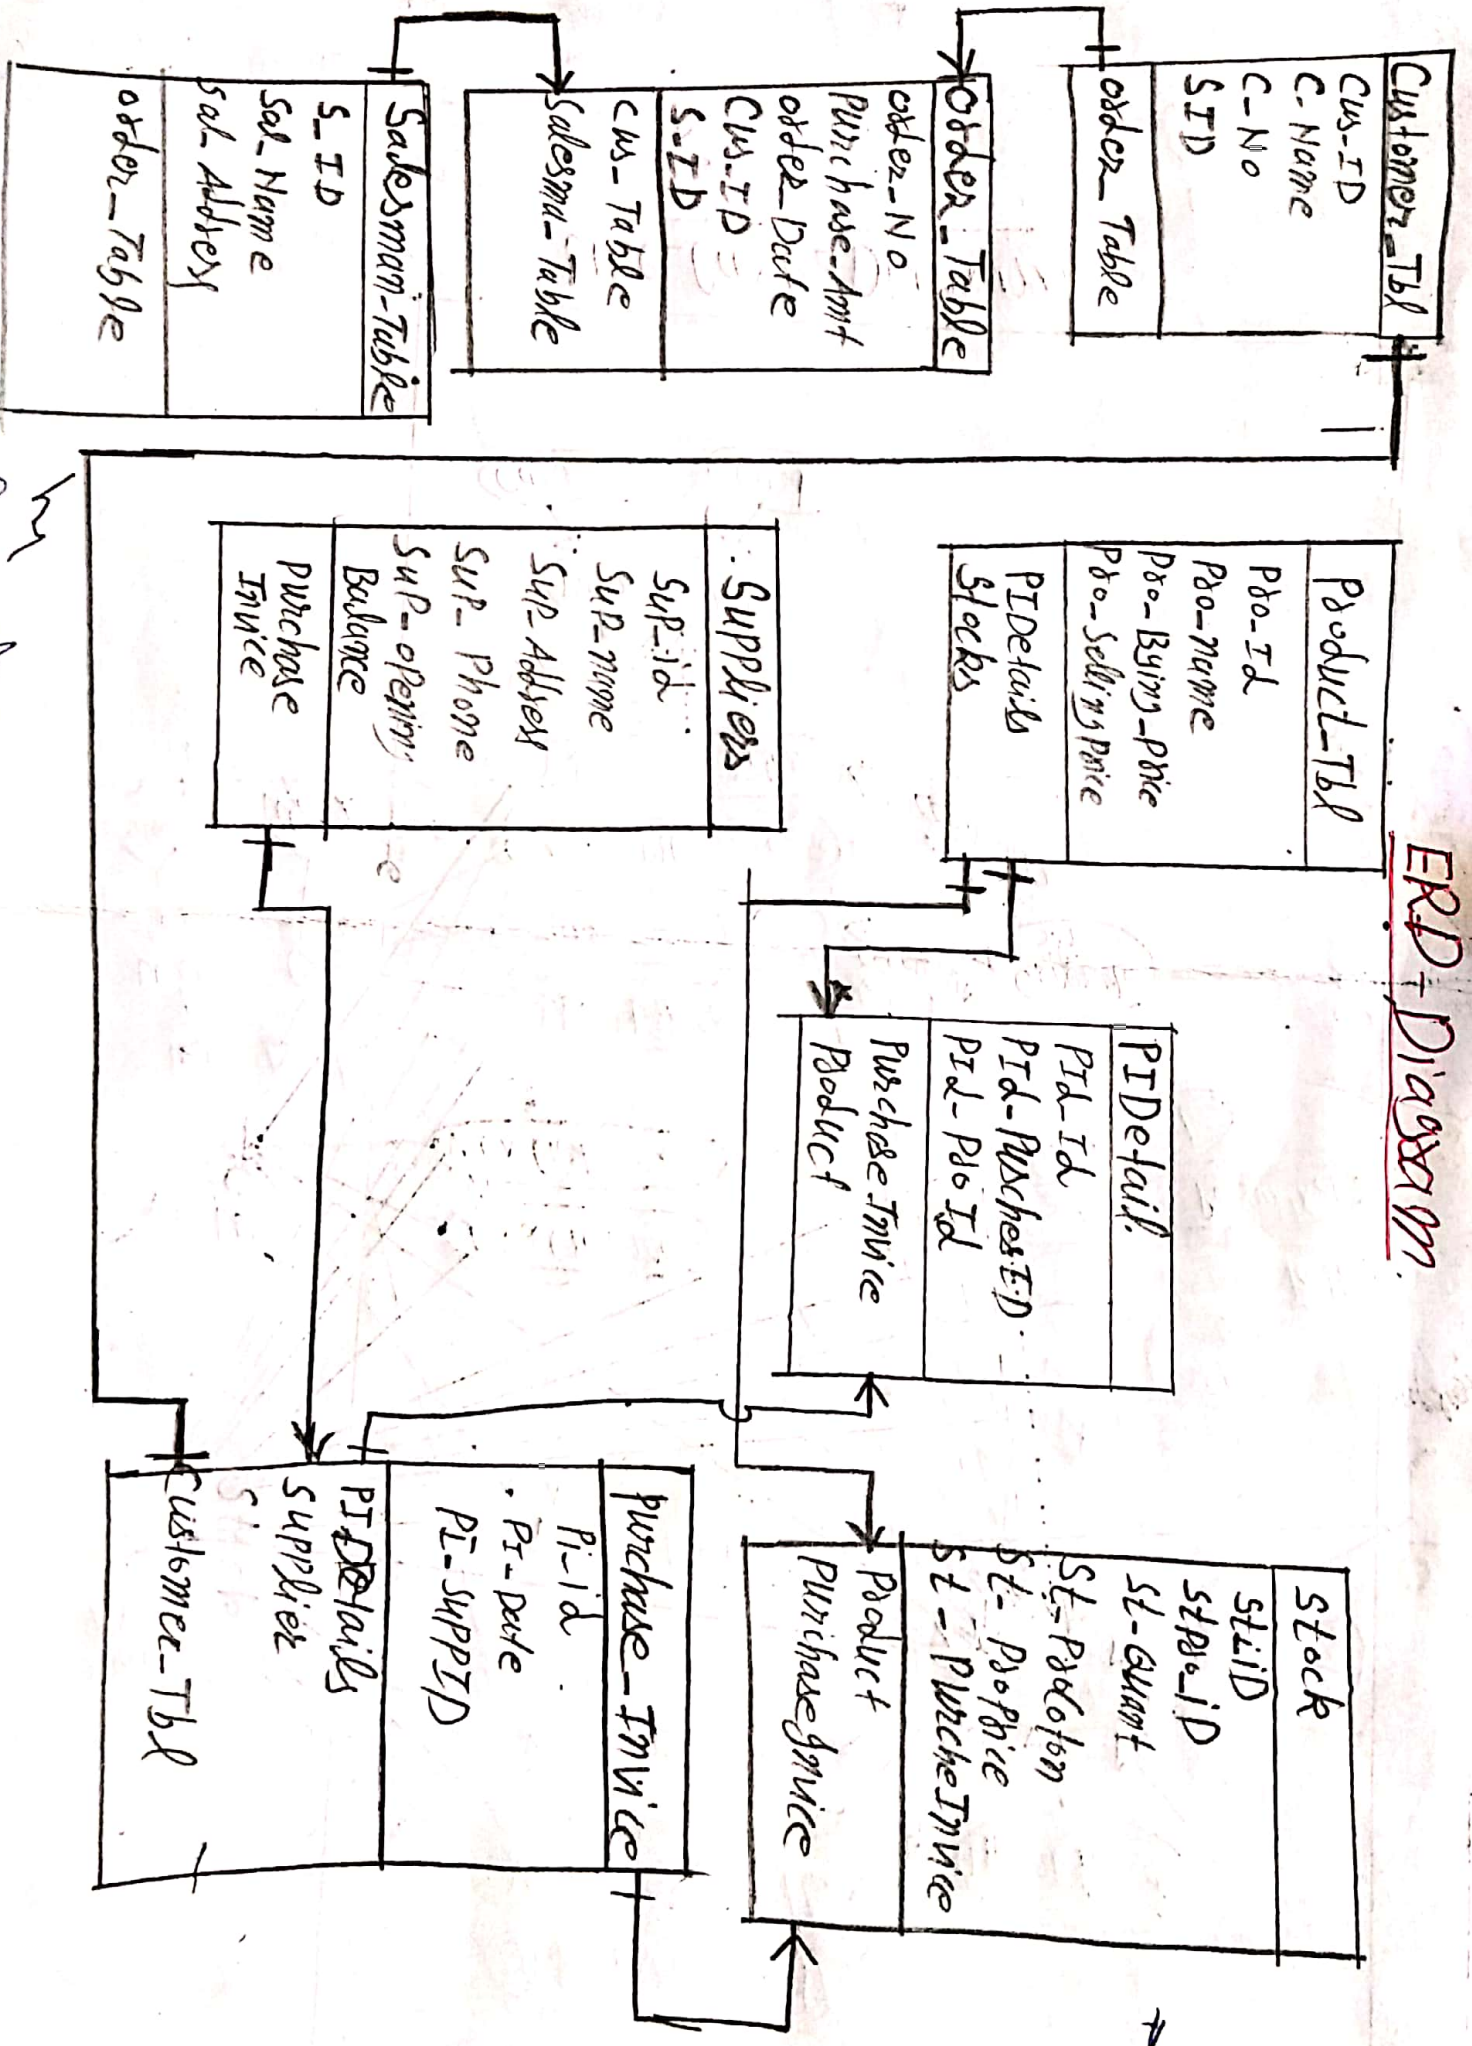 ERD-Diagram
Customer_Tbl
Cus-ID
C-Name
C-No
SID
order_Table
order_Table
order_No
Purchase_Amt
order_Date
Cus_ID
S-ID
Cus_Table
Salesma_Table
Salesmam-Table
S_ID
Sal_Name
Sal_Address
order_Table
Product_Tbl
Pro_Id
Pro_name
Pro_Bying_Price
Pro_SellingPrice
PIDetails
Stocks
Suppliers
Sup_id
Sup_name
Sup_Address
Sup_Phone
Sup_opening
Balance
Purchase
Invice
PIDetail
PId_Id
PId_PurchesID
PId_ProId
PurchaseInvice
Product
Stock
StiiD
StPro_iD
St-Quant
St-ProCoton
St-ProPrice
St-PurcheInvice
Product
PurchaseInvice
Purchase_Invice
Pi-id
PI-Date
PI-SUPPID
PIDetails
Supplier
Customer_Tbl